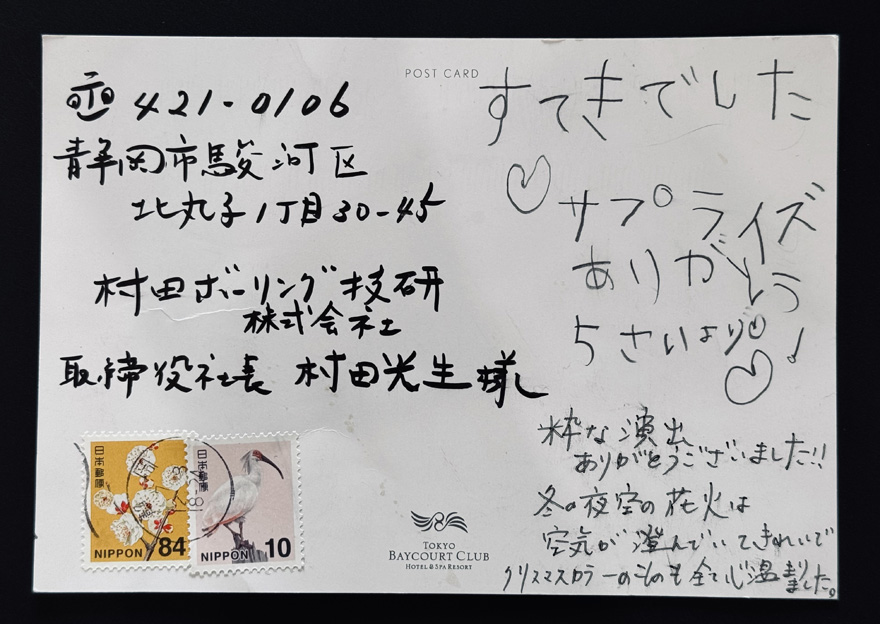 POST CARD
〒421-0106
静岡市駿河区
北丸子1丁目30-45
村田ボーリング技研
株式会社
取締役社長 村田光生様
すてきでした
サプライズ
ありがとう
5さいより!
粋な演出
ありがとうございました!!
冬の夜空の花火は
空気が澄んでいてきれいで
クリスマスカラーのものも全て心温まりました。
日本郵便
NIPPON 84
日本郵便
NIPPON 10
TOKYO
BAYCOURT CLUB
HOTEL & SPA RESORT